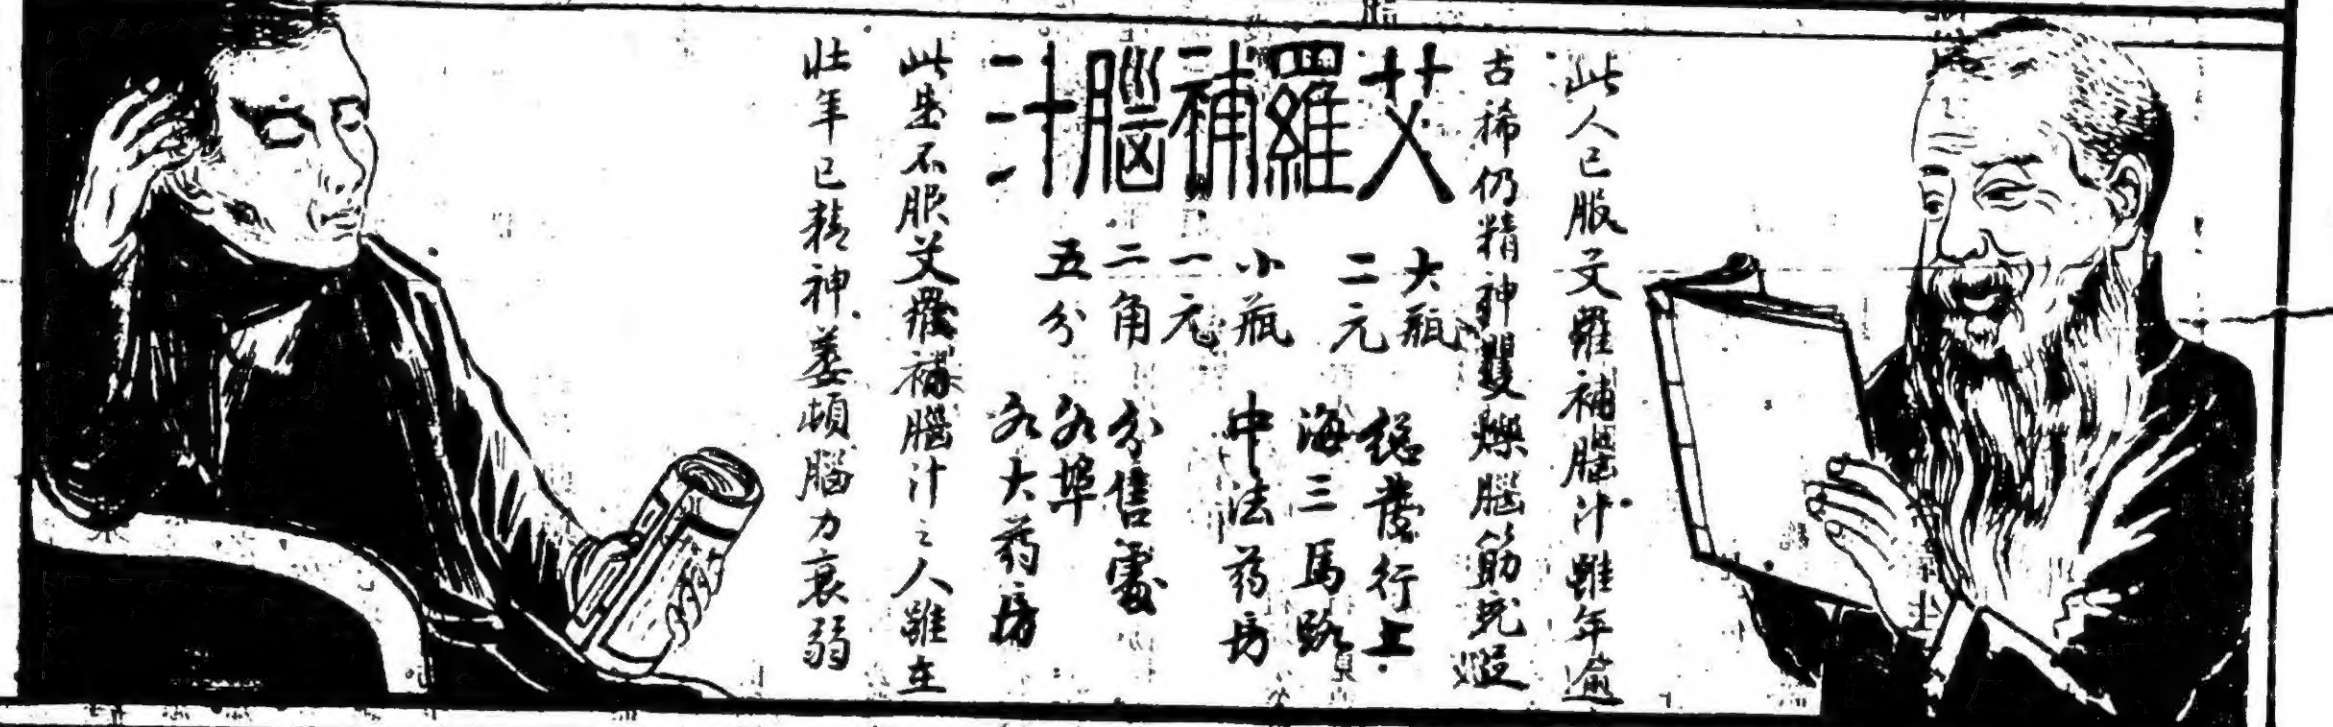 此人已服艾羅補腦汁雖年逾
古稀仍精神矍爍腦筋充
艾羅補腦汁
大瓶
二元
小瓶
一元
二角
五分
總發行上
海三馬路
中法药房
分售處
各埠
各大药房
此是不服艾羅補腦汁之人雖在
壯年已精神萎頓腦力衰弱